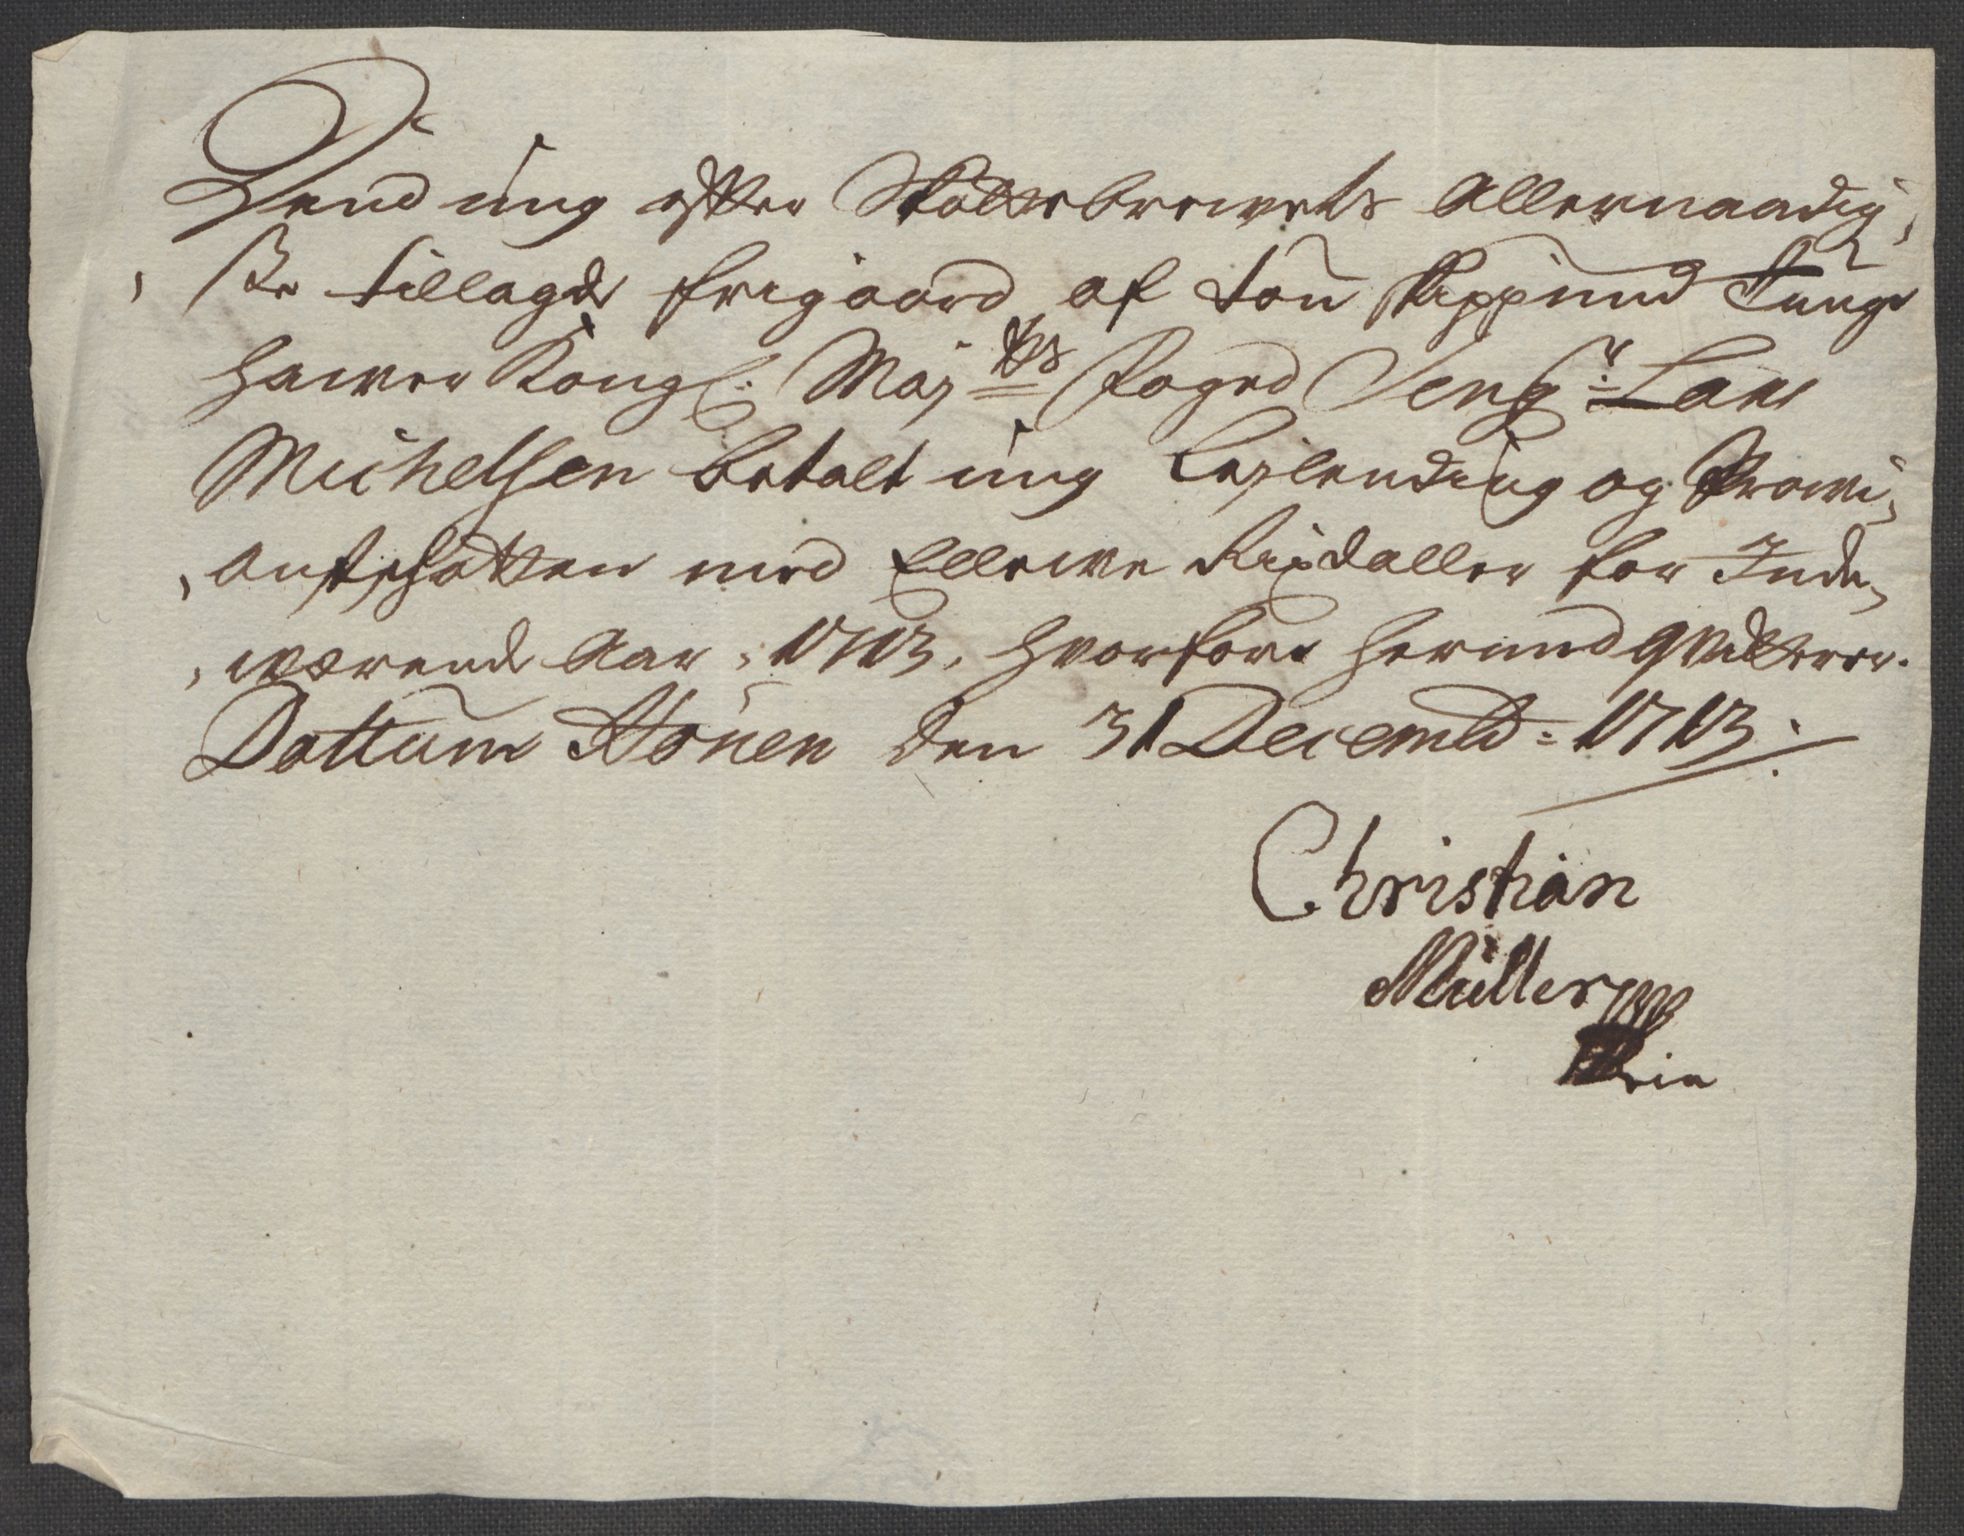 Dend mig efter Skattebrevets Allernaadig,
,ste tillagde frigaard af tou skippund Tunge
hawer Kongl: Maj:ts Foged Seng:r Lars
Michelsen betalt mig Lejlending og Provi,
,antschatten med Ellewe Rixdaller for Inde,
,wærende Aar, 1713, hvorfore hermed qvitterer.
Dattum den 31 Decembr: 1713
Christian
Müller